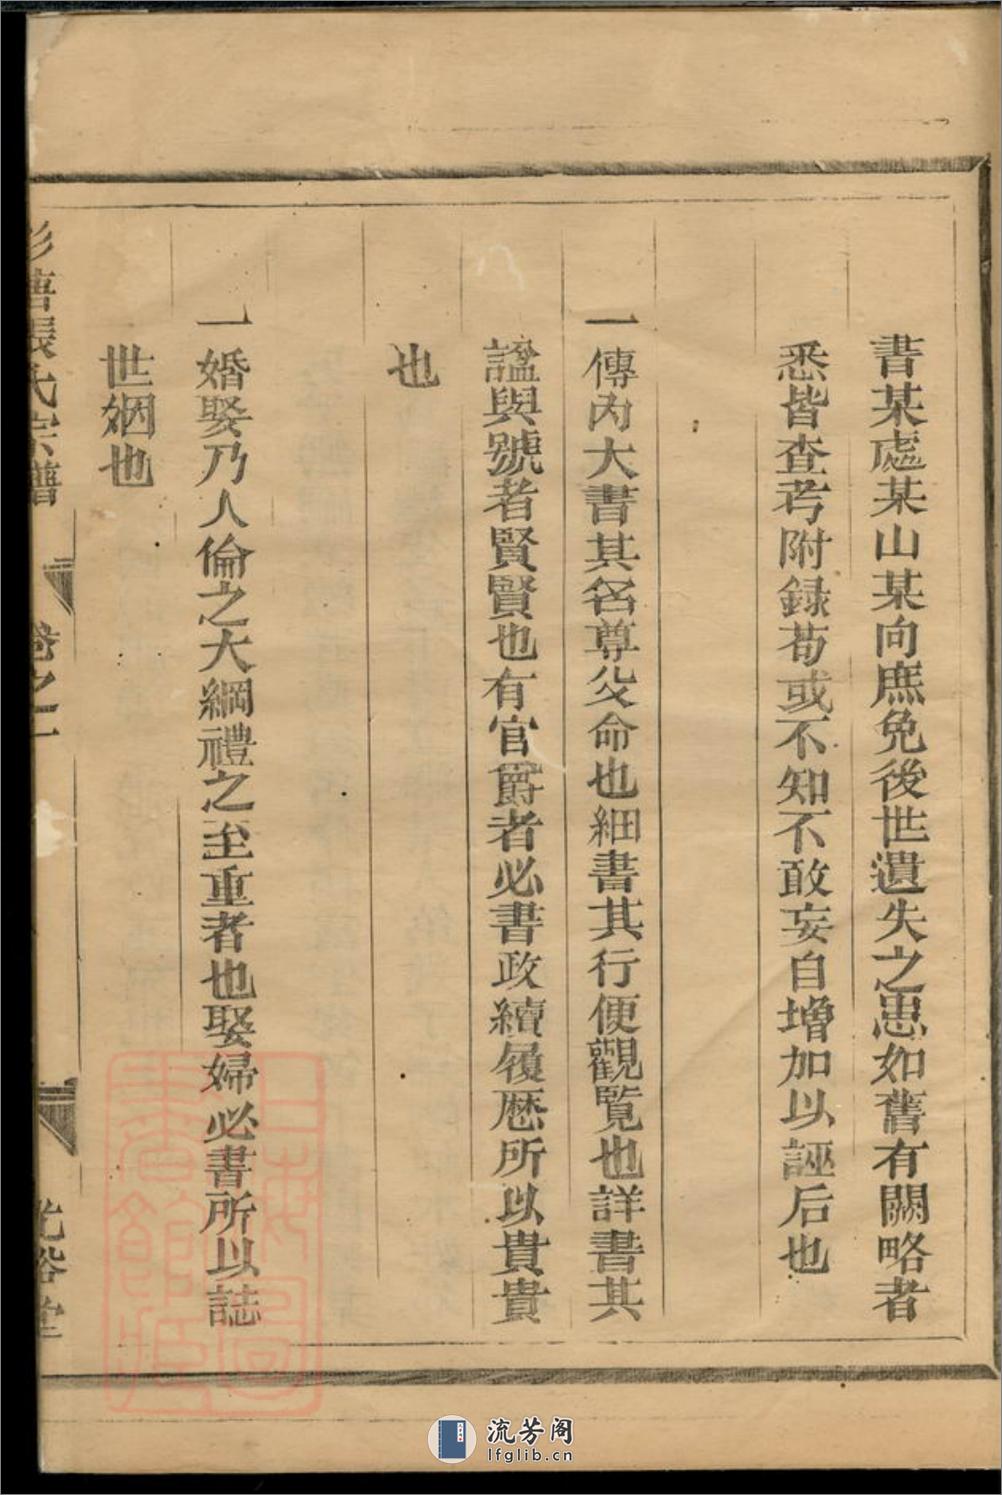 書某處某山某向庶免後世遺失之患如舊有闕略者
悉皆查考附録苟或不知不敢妄自增加以誣后也
一傳內大書其名尊父命也細書其行便觀覽也詳書其
諡與號者賢賢也有官爵者必書政績履歷所以貴貴
也
一婚娶乃人倫之大綱禮之至重者也娶婦必書所以誌
世姻也
張氏宗譜
卷之一
光裕堂
流芳阁
lfglib.cn